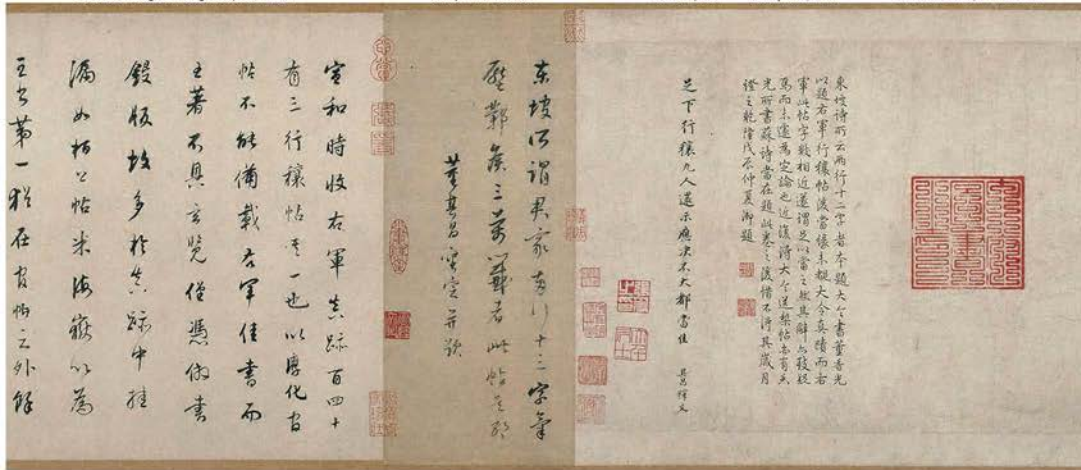 東坡詩所云兩行十二字者本題大令書董香光
以題右軍行穰帖後當緣未攷大令真蹟而右
軍此帖字數相近遂謂足以當之然其辭亦疑
焉而未遽為定論也近復得大令送梨帖有香
光所書蘇詩當在題此卷之後惜不得其歲月
證之乾隆戊辰仲夏御題
足下行穰九人還示應決不大都當佳 其昌釋文
東坡所謂君家兩行十三字氣
壓鄴侯三萬籤者此帖是耶
董其昌審定并題
宣和時收右軍真跡百四十
有三行穰帖其一也以淳化官
帖不能備載右軍佳書而
王著不具玄覽僅憑倣書
鋟版故多於真跡中挂
漏如桓公帖米海嶽以為
王書第一猶在官帖之外餘